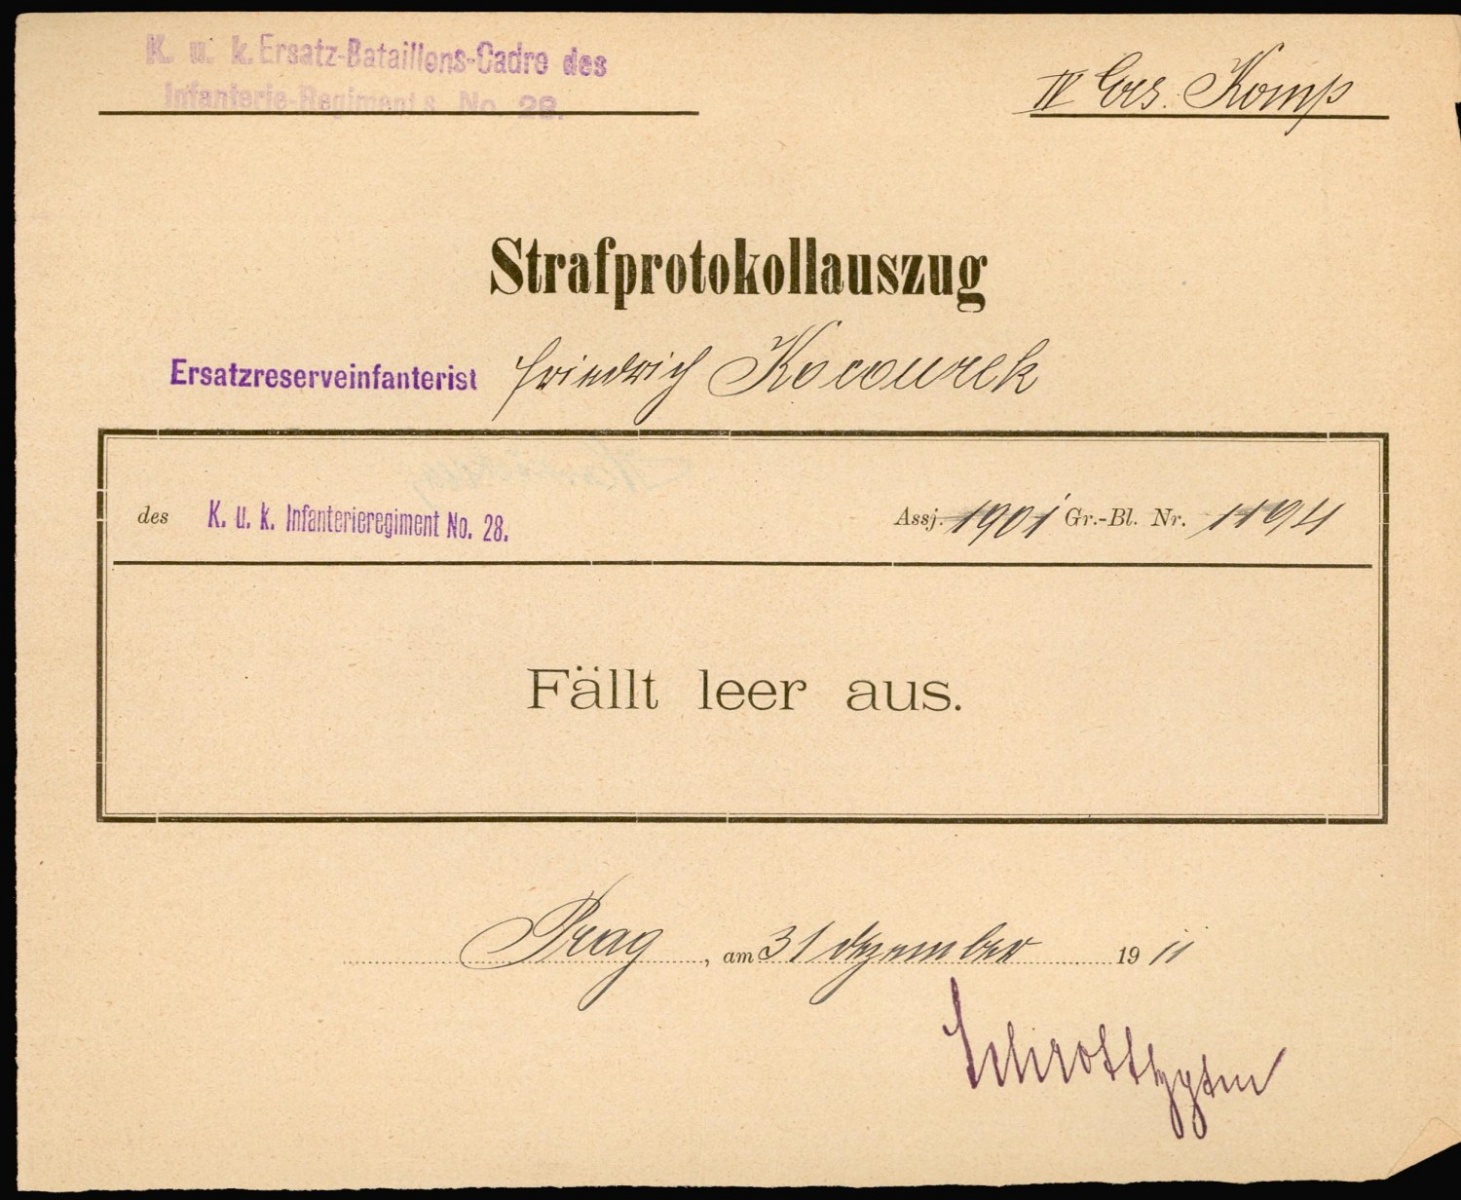 K. u. k. Ersatz-Bataillons-Cadre des
Infanterie-Regiments No. 28.
IV Ers. Komp
Strafprotokollauszug
Ersatzreserveinfanterist Friedrich Kocourek
des K. u. k. Infanterieregiment No. 28. Assj. 1901 Gr.-Bl. Nr. 1194
Fällt leer aus.
Prag, am 31 dezember 1911